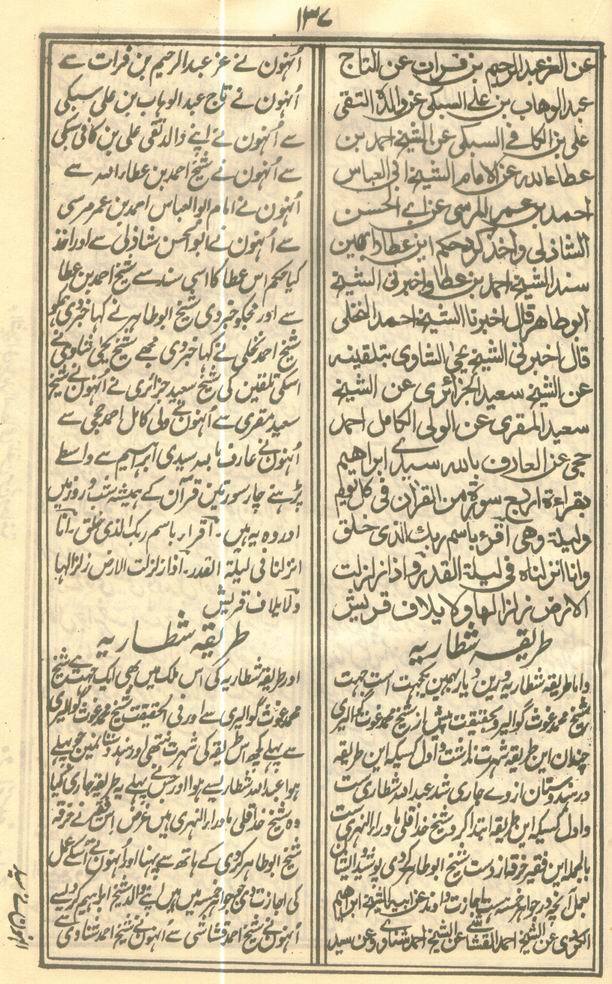 ١٣٧
عن العز عبد الرحيم بن فرات عن التاج
عبد الوهاب بن علي السبكي عن والده التقي
علي بن الكافي السبكي عن الشيخ احمد بن
عطاء الله عن الامام الشيخ ابي العباس
احمد بن عمر المرسي عن ابي الحسن
الشاذلي واخذ كل حكم ابن عطا
سند الشيخ احمد بن عطا واخبرني الشيخ
ابو طاهر قال اخبرنا الشيخ احمد النخلي
قال اخبرني الشيخ يحيى الشاوي بتلقينه
عن الشيخ سعيد الجزائري عن الشيخ
سعيد المقري عن الولي الكامل احمد
حجي عن العارف بالله سيدي ابراهيم
بقراءة اربع سورة من القران في كل يوم
وليلة وهي اقرء باسم ربك الذي خلق
وانا انزلناه في ليلة القدر واذا زلزلت
الارض زلزالها ولايلاف قريش
طريقہ شطاریہ
واما طریقہ شطاریہ درین دیار بہمین یکجہت است جہت
شیخ محمد غوث گوالیری و بحقیقت پیش از شیخ محمد غوث گوالیری
چندان این طریقہ شہرت نداشت و اول کسیکہ این طریقہ
در ہندوستان ازوے جاری شد عبد اللہ شطاری ست
و اول کسیکہ این طریقہ ابتدا کرد شیخ خدا قلی ماوراء النہری ست
بالجملہ این فقیر خرقہ از دست شیخ ابو طاہر کردی پوشید و ایشان
بعمل آنچہ در جواہر خمسہ ست اجازت دادند عن ابیہ الشیخ ابراہیم
الکردی عن الشیخ احمد القشاشی عن الشیخ احمد شناوی و عن سید
اُنہون نے عز عبد الرحیم بن فرات سے
اُنہون نے تاج عبد الوہاب بن علی سبکی
سے اُنہون نے اپنے والد تقی علی بن کافی سبکی
سے اُنہون نے شیخ احمد بن عطاء اللہ سے
اُنہون نے امام ابو العباس احمد بن عمر مرسی
سے اُنہون نے ابو الحسن شاذلی سے اور اخذ
کیا حکم اس عطا کا اسی سند سے شیخ احمد بن عطا
سے اور مجکو خبر دی شیخ ابو طاہر نے کہا خبر دی ہمکو
شیخ احمد نخلی نے کہا خبر دی مجھے شیخ یحیی شاوی نے
اسکی تلقین کی شیخ سعید جزائری نے اُنہون نے شیخ
سعید مقری سے اُنہون نے ولی کامل احمد حجی سے
اُنہون نے عارف باللہ سیدی ابراہیم سے واسطے
پڑہنے چار سورتین قرآن کے ہمیشہ شب و روز مین
اور وہ یہ ہین ۔ اقراء باسم ربک الذی خلق ۔ انا
انزلنا فی لیلة القدر ۔ اذا زلزلت الارض زلزالہا
ولایلاف قریش
طریقہ شطاریہ
اور طریقہ شطاریہ کی اس ملک مین بھی ایک جہت ہے شیخ
محمد غوث گوالیری سے اور فی الحقیقت شیخ محمد غوث گوالیری
سے پہلے کچھ اس طریقہ کی شہرت نہ تھی اور ہندوستان مین جو پہلے
ہوا عبد اللہ شطار سے ہوا اور جس نے پہلے یہ طریقہ جاری کیا
وہ شیخ خدا قلی ماوراء النہری ہین غرض اس فقیر نے خرقہ
شیخ ابو طاہر کردی کے ہاتھ سے پہنا اور اُنہون نے اسکے عمل
کی اجازت دی جو جواہر خمسہ مین ہین اپنے والد شیخ ابراہیم کردی سے
اُنہون نے شیخ احمد قشاشی سے انہون نے شیخ احمد شناوی سے
انہون نے سید